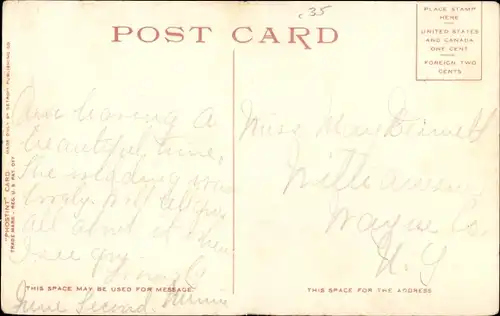 .35
POST CARD
PLACE STAMP
HERE
UNITED STATES
AND CANADA
ONE CENT
FOREIGN TWO
CENTS
"PHOSTINT" CARD
TRADE MARK - REG. U.S. PAT. OFF.
MADE ONLY BY DETROIT PUBLISHING CO.
Am having a
beautiful time.
The wedding was
lovely. Will tell you
all about it when
I see you.
Minnie
June Second.
THIS SPACE MAY BE USED FOR MESSAGE.
Miss May
Williamson
Wayne Co.
N. Y
THIS SPACE IS FOR THE ADDRESS